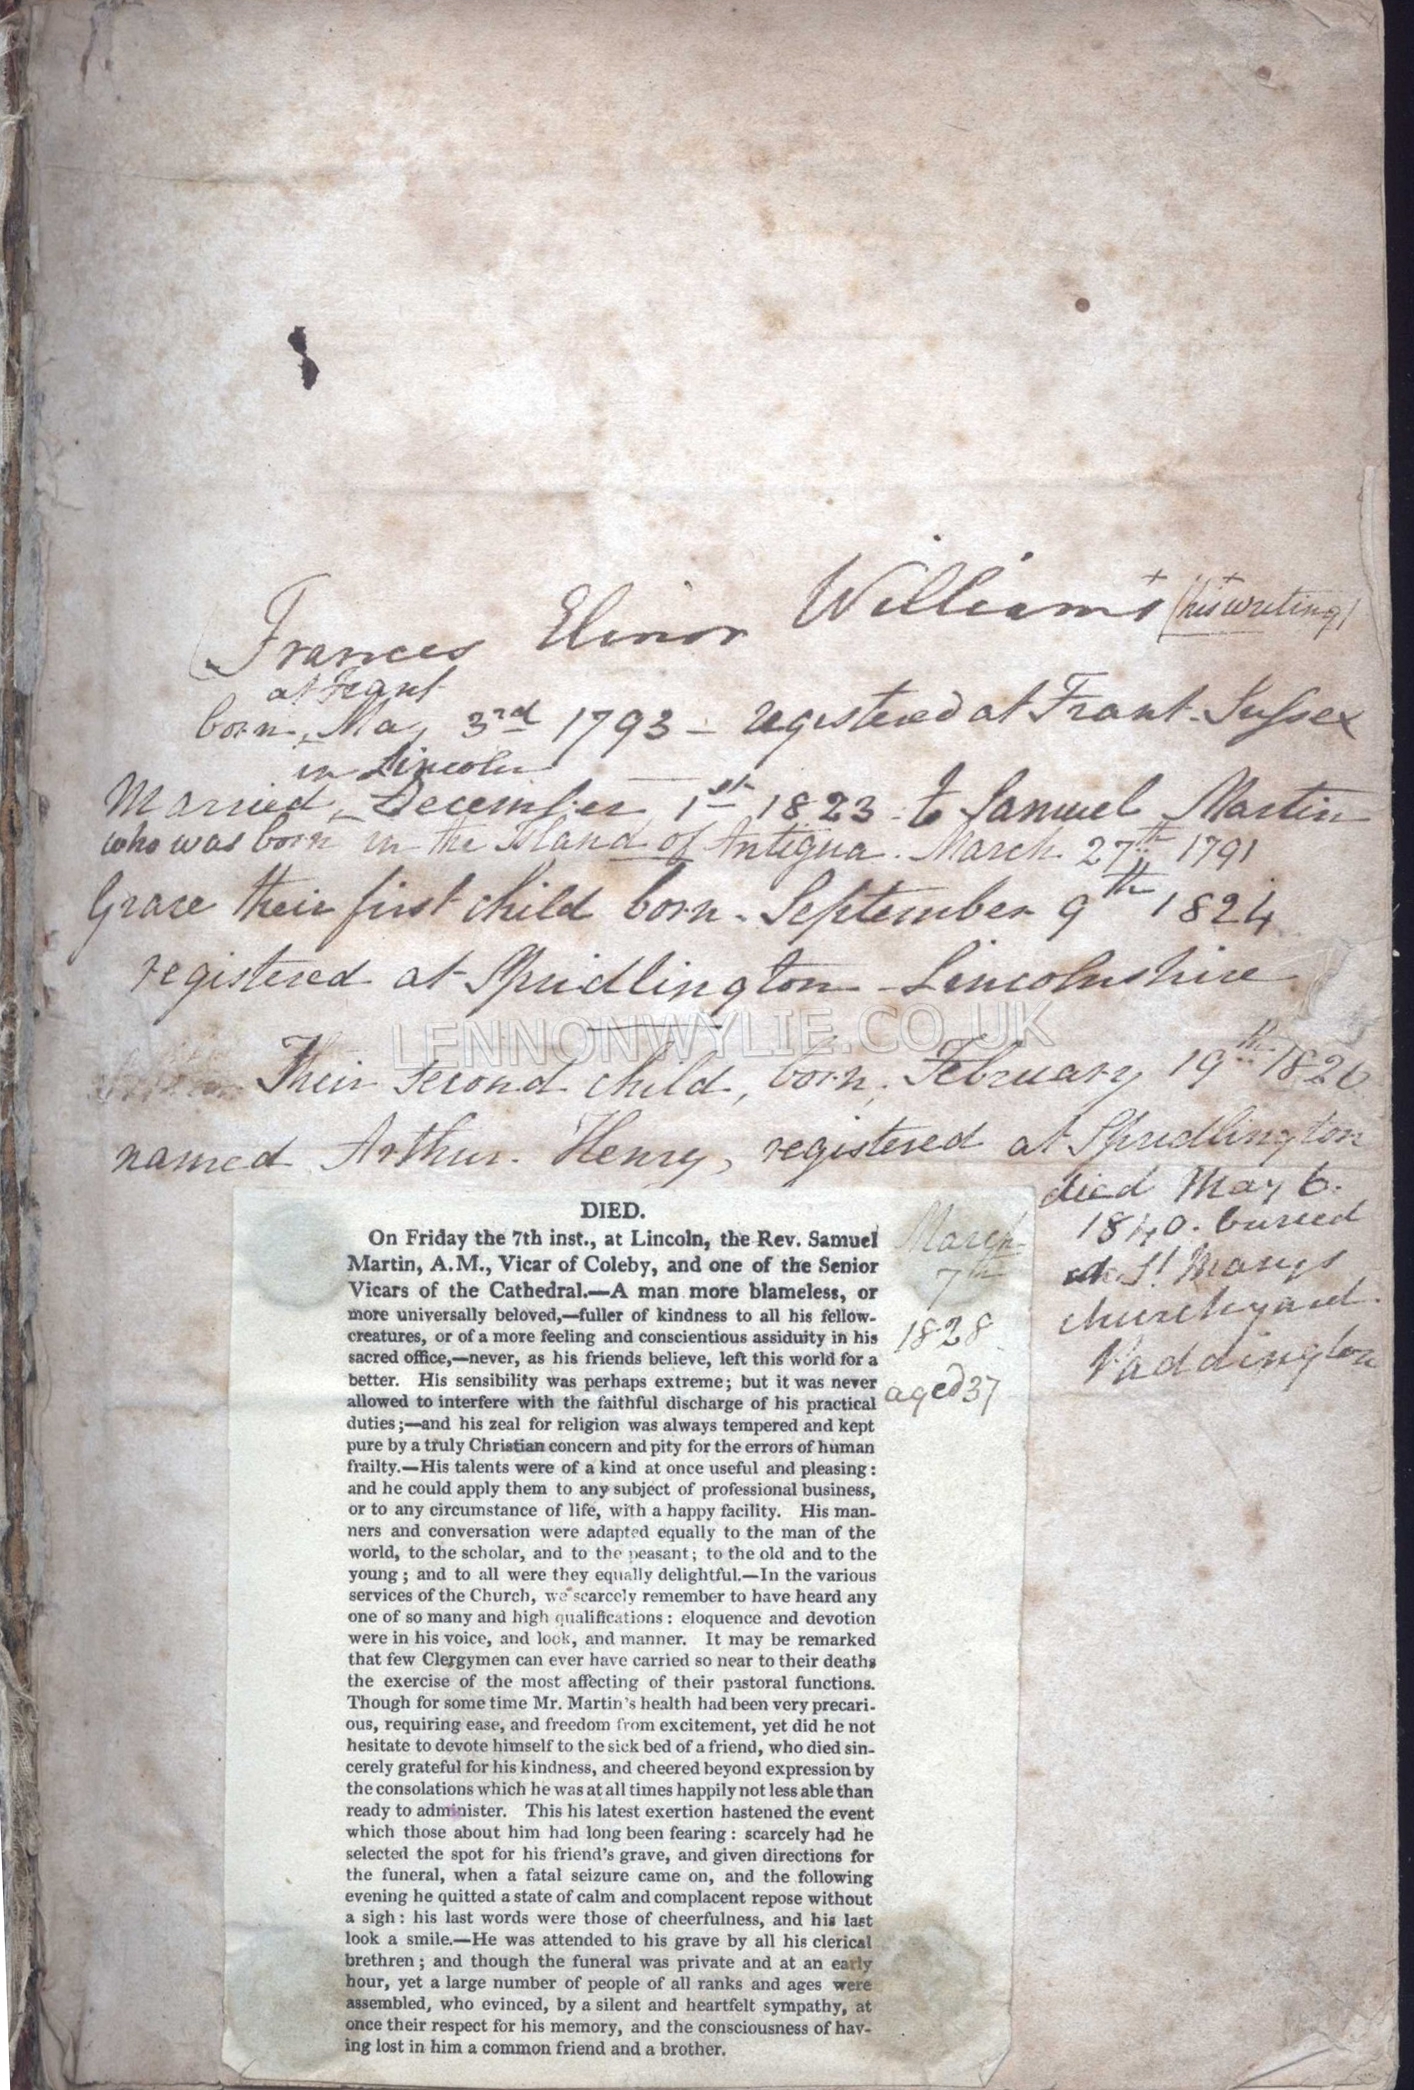 Frances Elinor Williams + (his + writing)
at Frant
born, May 3rd 1793 - registered at Frant - Sussex
in Lincoln
Married, December 1st 1823 to Samuel Martin
who was born in the Island of Antigua. March 27th 1791
Grace their first child born - September 9th 1824
registered at Spridlington - Lincolnshire
LENNONWYLIE.CO.UK
Their second child, born, February 19th 1826
named Arthur. Henry, registered at Spridlington
died May 6.
1840. buried
St Marys
churchyard.
Paddington
March
7th
1828
aged 37
DIED.
On Friday the 7th inst., at Lincoln, the Rev. Samuel
Martin, A.M., Vicar of Coleby, and one of the Senior
Vicars of the Cathedral.—A man more blameless, or
more universally beloved,—fuller of kindness to all his fellow-
creatures, or of a more feeling and conscientious assiduity in his
sacred office,—never, as his friends believe, left this world for a
better. His sensibility was perhaps extreme; but it was never
allowed to interfere with the faithful discharge of his practical
duties;—and his zeal for religion was always tempered and kept
pure by a truly Christian concern and pity for the errors of human
frailty.—His talents were of a kind at once useful and pleasing:
and he could apply them to any subject of professional business,
or to any circumstance of life, with a happy facility. His man-
ners and conversation were adapted equally to the man of the
world, to the scholar, and to the peasant; to the old and to the
young; and to all were they equally delightful.—In the various
services of the Church, we scarcely remember to have heard any
one of so many and high qualifications: eloquence and devotion
were in his voice, and look, and manner. It may be remarked
that few Clergymen can ever have carried so near to their deaths
the exercise of the most affecting of their pastoral functions.
Though for some time Mr. Martin's health had been very precari-
ous, requiring ease, and freedom from excitement, yet did he not
hesitate to devote himself to the sick bed of a friend, who died sin-
cerely grateful for his kindness, and cheered beyond expression by
the consolations which he was at all times happily not less able than
ready to administer. This his latest exertion hastened the event
which those about him had long been fearing: scarcely had he
selected the spot for his friend's grave, and given directions for
the funeral, when a fatal seizure came on, and the following
evening he quitted a state of calm and complacent repose without
a sigh: his last words were those of cheerfulness, and his last
look a smile.—He was attended to his grave by all his clerical
brethren; and though the funeral was private and at an early
hour, yet a large number of people of all ranks and ages were
assembled, who evinced, by a silent and heartfelt sympathy, at
once their respect for his memory, and the consciousness of hav-
ing lost in him a common friend and a brother.